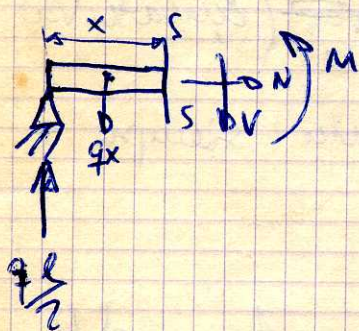 x S
N M
S V
qx
q l/2